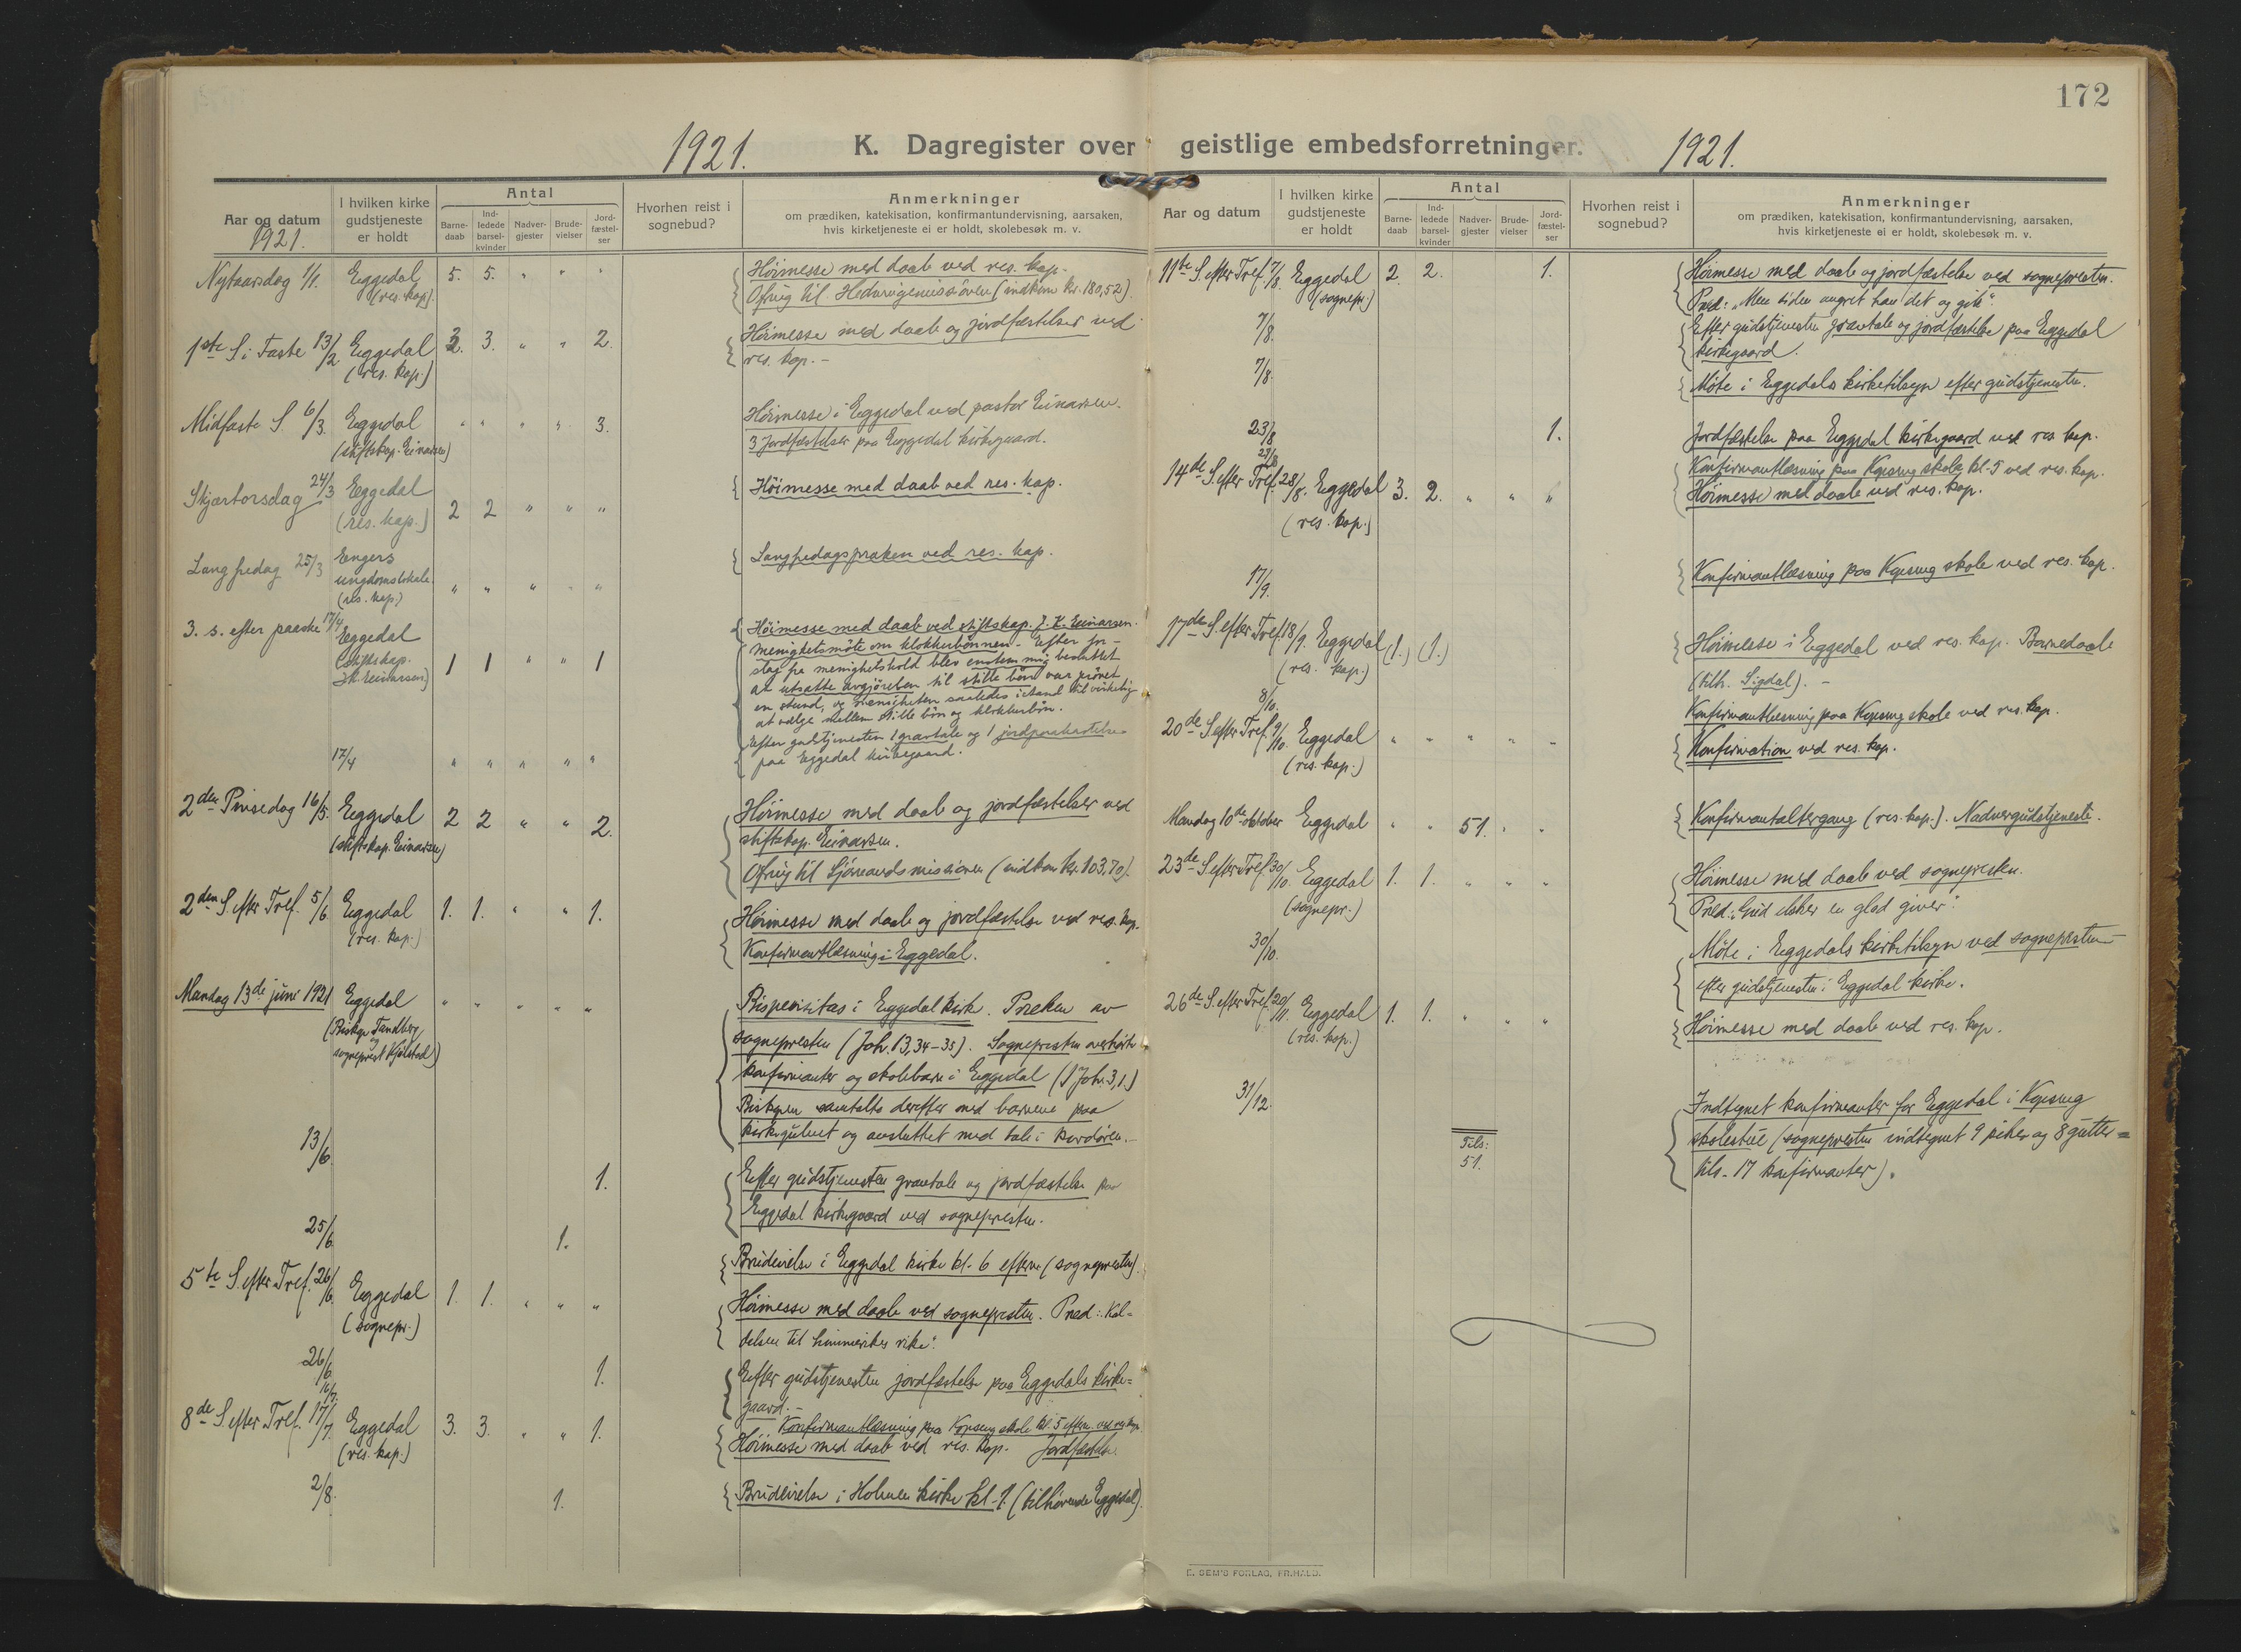 172
1921. K. Dagregister over geistlige embedsforretninger. 1921.
Aar og datum
1921.
I hvilken kirke
gudstjeneste
er holdt
Antal
Barne-
daab
Ind-
ledede
barsel-
kvinder
Nadver-
gjester
Brude-
vielser
Jord-
fæstel-
ser
Hvorhen reist i
sognebud?
Anmerkninger
om prædiken, katekisation, konfirmantundervisning, aarsaken,
hvis kirketjeneste ei er holdt, skolebesøk m. v.
Nytaarsdag 1/1. Eggedal 5. 5. " " " Höimesse med daab ved res. kap.
(res. kap). Ofring til (indkom kr. 180,52).
1ste S. i Faste 13/2 Eggedal 3. 3. " " 2. Höimesse med daab og jordfæstelser ved
(res. kap.) res. kap. -
Midfaste S. 6/3. Eggedal " " " " 3. Höimesse i Eggedal ved pastor Einarsen.
(stiftskap. Einarsen) 3 Jordfæstelser paa Eggedal kirkegaard.
Skjærtorsdag 24/3 Eggedal 2 2 " " " Höimesse med daab ved res. kap.
(res. kap.)
Langfredag 25/3 Engers " " " " " Langfredagspreken ved res. kap.
ungdomslokale.
(res. kap.)
3. s. efter paaske 17/4 Eggedal 1 1 " " 1 Höimesse med daab ved stiftskap. J. K. Einarsen.
(stiftskap. menighetsmöte om klokkerbönnen. - Efter for-
J.K. Einarsen) slag fra menighetshold blev enstemmig besluttet
at utsætte avgjörelsen til stille bön var prövet
en stund, og menigheten saaledes istand til virkelig
at vælge mellem stille bön og klokkerbön.
17/4 " " " " " Efter gudstjenesten 1 gravtale og 1 jordpaakastelse
paa Eggedal kirkegaard.
2den Pinsedag 16/5. Eggedal 2 2 " " 2. Höimesse med daab og jordfæstelser ved
(stiftskap. Einarsen) stiftskap. Einarsen.
Ofring til Sjömandsmissionen (indkom kr. 103,70).
2den S. efter Tref. 5/6. Eggedal 1. 1. " " 1. Höimesse med daab og jordfæstelse ved res. kap.
(res. kap.) Konfirmantlæsning i Eggedal.
Mandag 13de juni 1921 Eggedal " " " " " Bispevisitas i Eggedal kirke. Preken av
(Biskop Tandberg sognepresten (Joh. 13,34-35). Sognepresten overhörte
og konfirmanter og skolebarn i Eggedal (1 Joh. 3,1.)
sogneprest Kjölstad) Biskopen samtalte derefter med barnene paa
kirkegulvet og avsluttet med tale i kordören. -
13/6. 1. Efter gudstjenesten gravtale og jordfæstelse paa
Eggedal kirkegaard ved sognepresten.
25/6. 1. Brudevielse i Eggedal kirke kl. 6 efterm (sognepresten).
5te S. efter Tref. 26/6. Eggedal 1. 1. " " " Höimesse med daab ved sognepresten. Pred: "Kal=
(sognepr.) delsen til himmerikes rike".
26/6. 1. Efter gudstjenesten jordfæstelse paa Eggedals kirke=
gaard. -
16/7. Konfirmantlæsning paa Kopseng skole kl. 5 efterm. ved res. kap.
8de S. efter Tref. 17/7. Eggedal 3. 3. " " 1. Höimesse med daab ved res. kap. Jordfæstelse.
(res. kap.)
2/8. 1. Brudevielse i Holmen kirke kl. 1. (tilhörende Eggedal).
Aar og datum
I hvilken kirke
gudstjeneste
er holdt
Antal
Barne-
daab
Ind-
ledede
barsel-
kvinder
Nadver-
gjester
Brude-
vielser
Jord-
fæstel-
ser
Hvorhen reist i
sognebud?
Anmerkninger
om prædiken, katekisation, konfirmantundervisning, aarsaken,
hvis kirketjeneste ei er holdt, skolebesøk m. v.
11te S. efter Tref. 7/8. Eggedal 2. 2. 1. Höimesse med daab og jordfæstelse ved sognepresten.
(sognepr.) Pred: "Men siden angret han det og gik".
7/8. Efter gudstjenesten gravtale og jordfæstelse paa Eggedal
kirkegaard.
7/8. Möte i Eggedals kirketilsyn efter gudstjenesten.
23/8 1. Jordfæstelse paa Eggedal kirkegaard ved res. kap.
27/8 Konfirmantlæsning paa Kopseng skole kl. 5 ved res. kap.
14de S. efter Tref. 28/8. Eggedal 3. 2. " " " Höimesse med daab ved res. kap.
(res. kap.)
17/9. Konfirmantlæsning paa Kopseng skole ved res. kap.
17de S. efter Tref. 18/9. Eggedal (1.) (1.) Höimesse i Eggedal ved res. kap. Barnedaab
(res. kap.) (tilh. Sigdal). -
8/10. Konfirmantlæsning paa Kopseng skole ved res. kap.
20de S. efter Tref. 9/10. Eggedal " " " " " Konfirmation ved res. kap.
(res. kap.)
Mandag 10de oktober Eggedal " " 51. " " Konfirmantaltergang (res. kap.). Nadvergudstjeneste.
23de S. efter Tref. 30/10. Eggedal 1. 1. " " " Höimesse med daab ved sognepresten.
(sognepr.) Pred: "Gud elsker en glad giver".
30/10. Möte i Eggedals kirketilsyn ved sognepresten
efter gudstjenesten i Eggedal kirke.
26de S. efter Tref. 20/11. Eggedal 1. 1. " " " Höimesse med daab ved res. kap.
(res. kap.)
31/12. Indtegnet konfirmanter for Eggedal i Kopseng
Tils: skolestue (sognepresten indtegnet 9 piker og 8 gutter =
51. tils. 17 konfirmanter).
E. SEM'S FORLAG, FR.HALD.